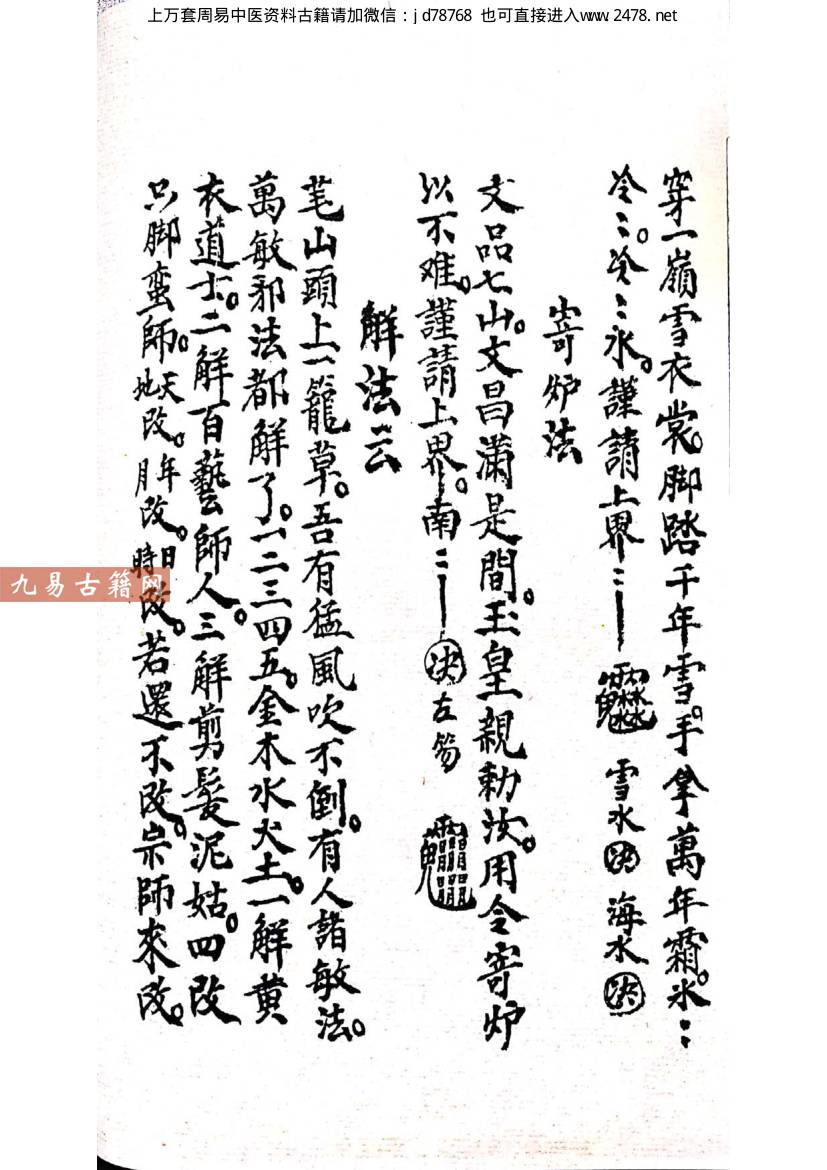 上万套周易中医资料古籍请加微信：jd78768 也可直接进入www.2478.net
穿一嶺雪衣裳。脚踏千年雪。手拿萬年霜。氷：
冷：。冷：氷。謹請上界：雪水決海水決
寄炉法
文品七山。文昌满是間。玉皇親勅汝。用令寄炉
以不难。謹請上界。南：決左笏
解法云
茅山頭上一籠草。吾有猛風吹不倒。有人諸敏法。
萬敏邪法都解了。一二三四五。金木水火土。一解黄
衣道士。二解百藝師人。三解剪髮泥姑。四改
只脚蛮師。天地改。年月改。日時改。若還不改。宗師來改。
九易古籍网